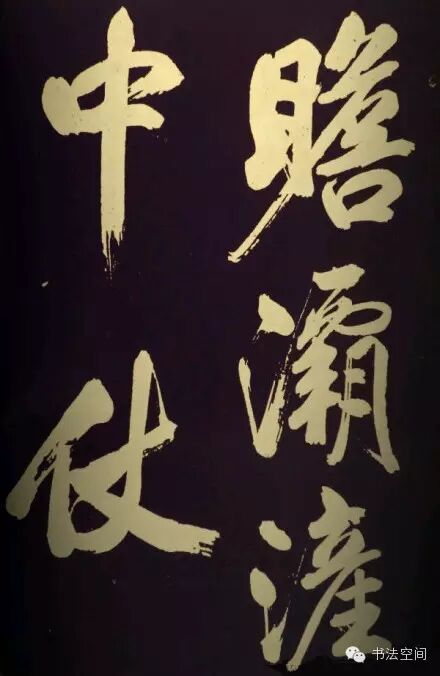 瞻灞滻
中仗
书法空间